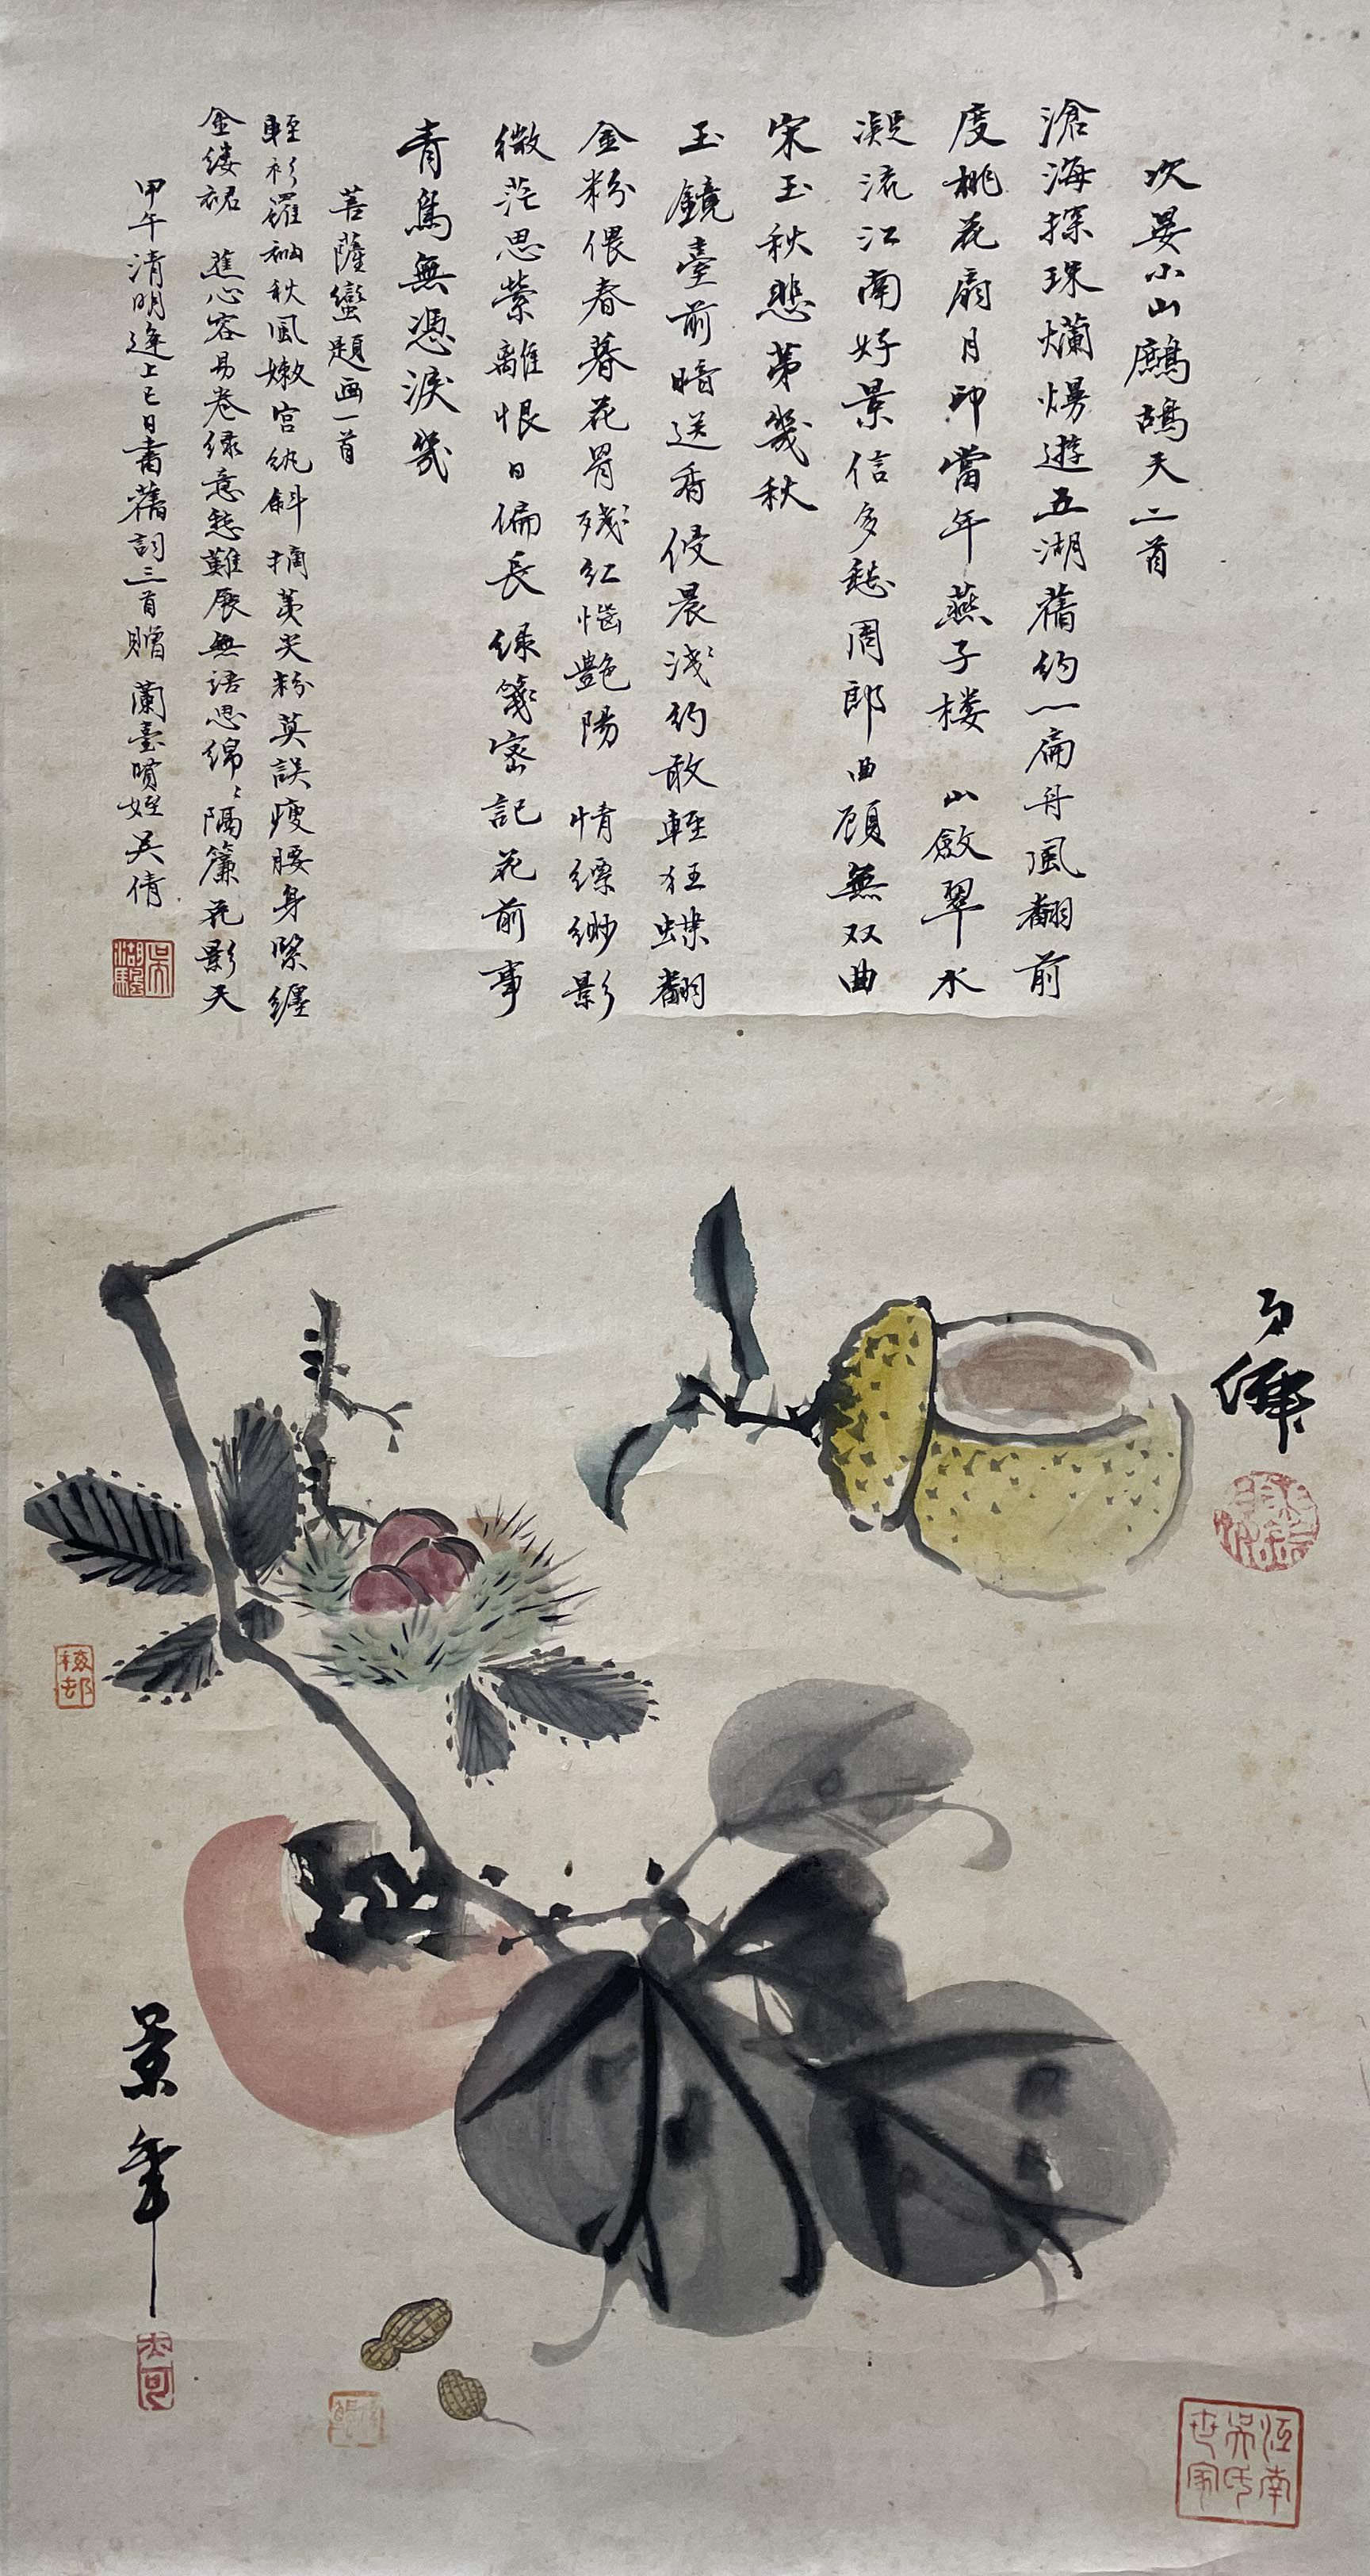 次晏小山鷓鴣天二首
滄海探珠爛熳遊五湖舊約一扁舟風翻前
度桃花扇月印當年燕子楼 山斂翠水
凝流江南好景信多愁周郎曲顧無双曲
宋玉秋悲第幾秋
玉鏡臺前暗送香侵晨淺約敢輕狂蝶翻
金粉偎春暮花罥残紅惱艷陽 情縹緲影
微茫思縈離恨日偏長綠箋密記花前事
青鳥無憑淚幾
菩薩蠻題画一首
輕衫羅袖秋風嫩宫紈斜摘荑尖粉莫誤瘦腰身緊纏
金缕裙 蕉心容易卷綠意愁難展無語思綿綿隔簾花影天
甲午清明逢上巳日書舊詞三首贈 蘭臺賢姪吴倩
江南吳氏世家
景年